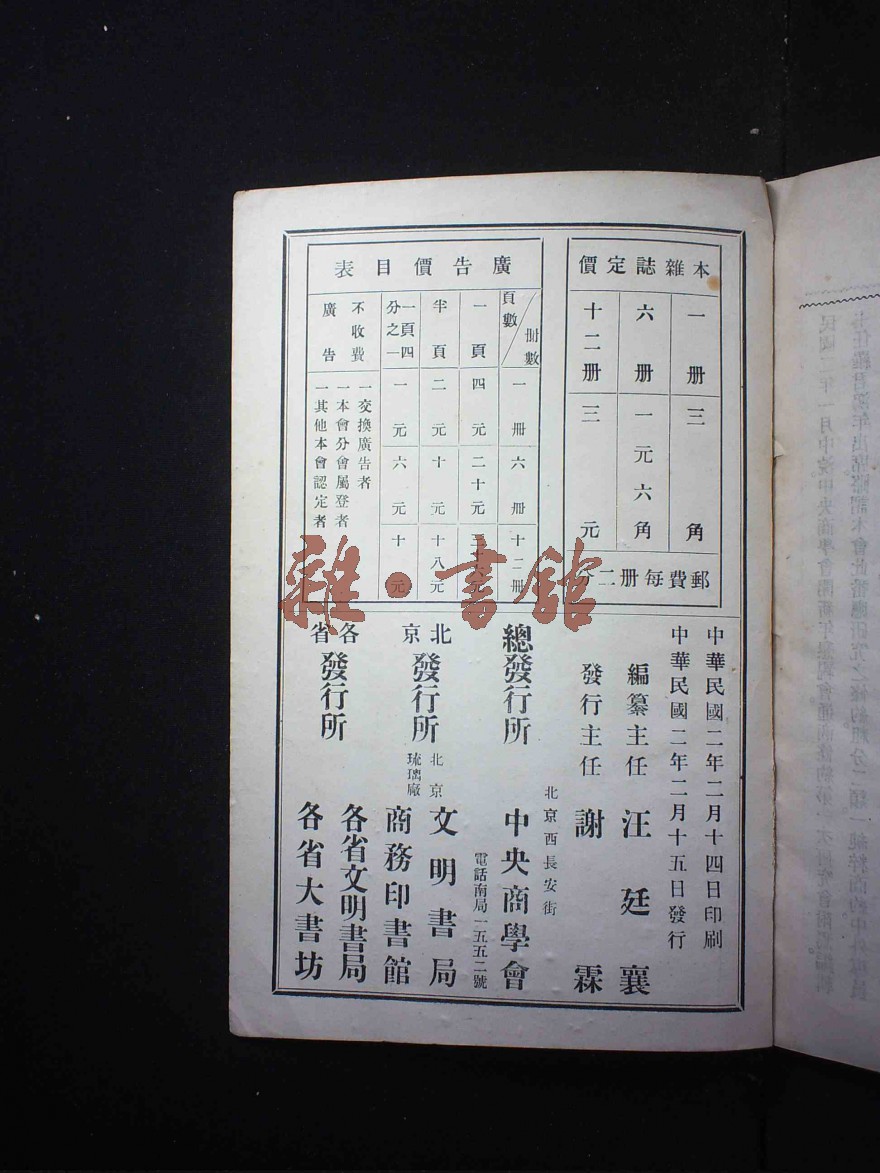 本雜誌定價
一册 三角
六册 一元六角
十二册 三元
郵費每册二分
廣告價目表
頁數／册數 一册 六册 十二册
一頁 四元 二十元 三十六元
半頁 二元 十元 十八元
一頁四分之一 一元 六元 十元
不收費廣告
一交換廣告者
一本會分會屬登者
一其他本會認定者
中華民國二年二月十四日印刷
中華民國二年二月十五日發行
編纂主任 汪廷襄
發行主任 謝霖
北京西長安街
總發行所 中央商學會
電話南局一五五二號
北京發行所 北京琉璃廠 文明書局
商務印書館
各省發行所 各省文明書局
各省大書坊
雜·書館